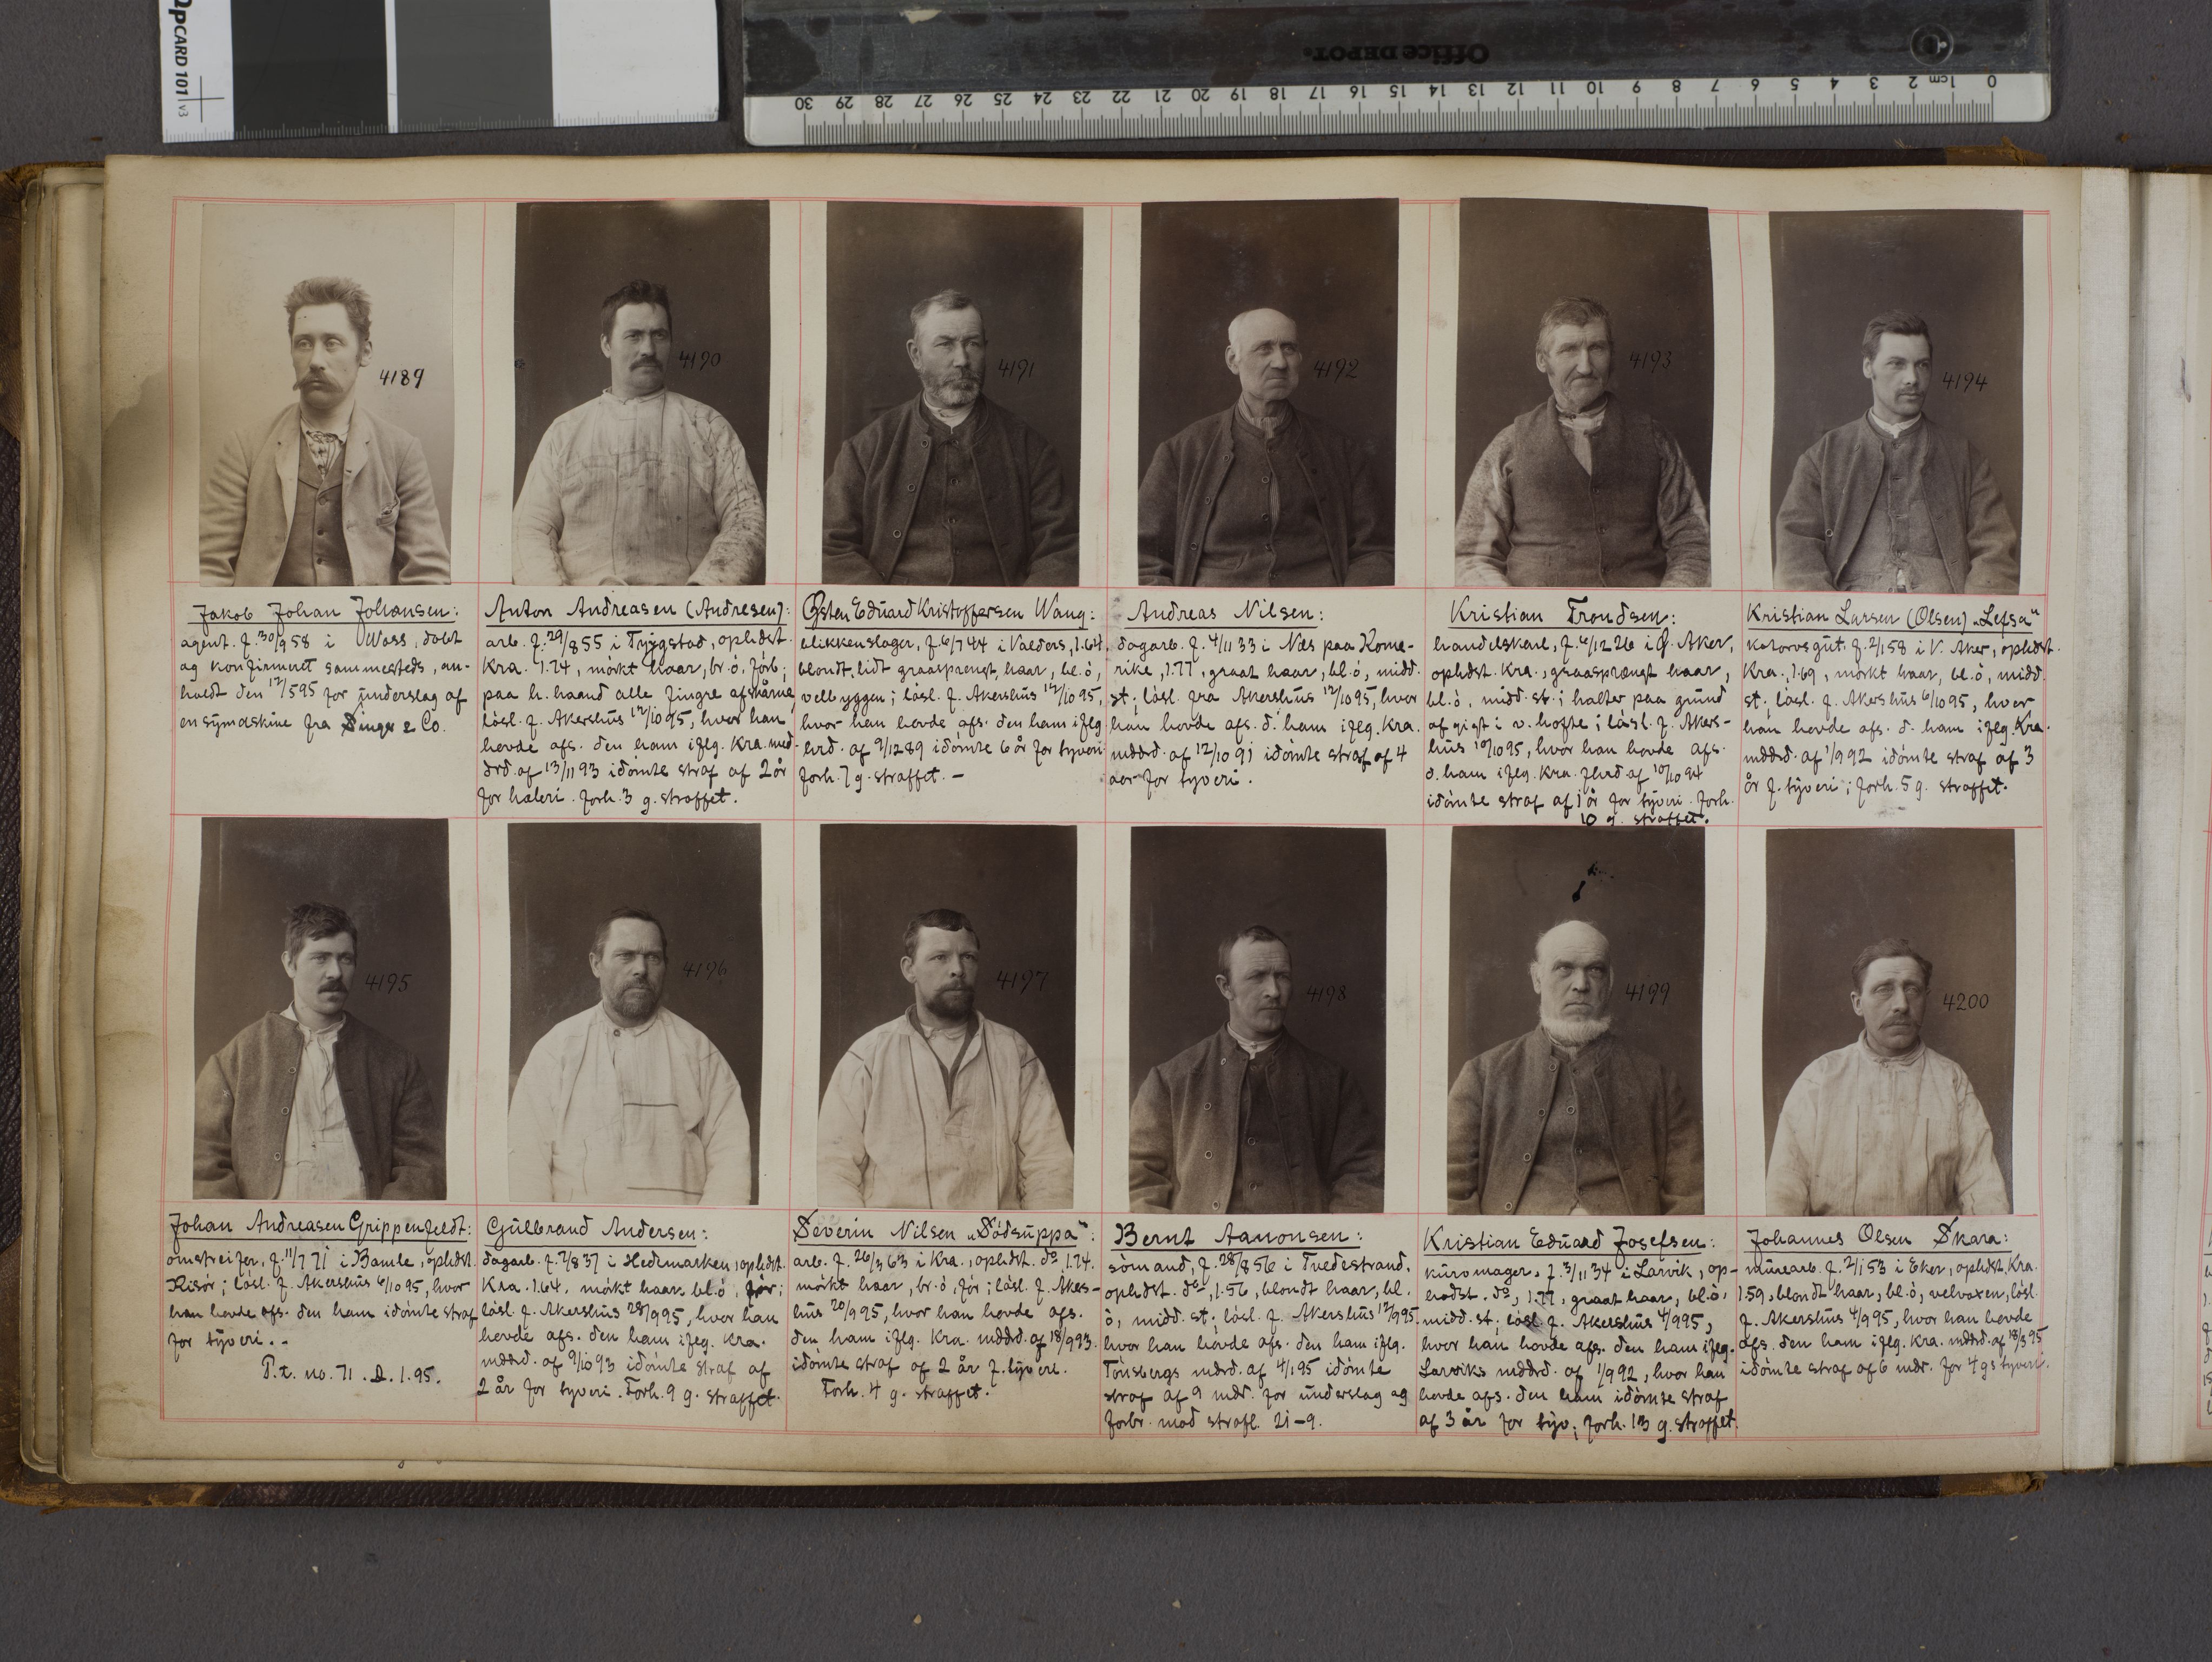 QpCARD 101 v3
Office DEPOT
0 1cm 2 3 4 5 6 7 8 9 10 11 12 13 14 15 16 17 18 19 20 21 22 23 24 25 26 27 28 29 30
4189
4190
4191
4192
4193
4194
Jakob Johan Johansen:
agent. f. 30/9 58 i Woss, døbt
og konfirmeret sammesteds, an-
holdt den 12/5 95 for underslag af
en symaskine fra Singer & Co.
Anton Andreasen (Andresen):
arb. f. 29/8 55 i Trygstad, opholdst.
Kra. 1.74, mörkt haar, br. ö. förb;
paa h. haand alle fingre afskårne,
lösl. f. Akershus 12/10 95, hvor han
hovde afs. den ham iflg. Kra. med-
drd. af 13/11 93 idömte straf af 2 år
for hæleri. forh. 3 g. straffet.
Östen Eduard Kristoffersen Wang:
blikkenslager, f. 6/7 44 i Valders, 1.64,
blondt, lidt graasprengt haar, bl. ö,
velbyggen; lösl. f. Akershus 12/10 95,
hvor han hovde afs. den ham iflg.
hrd. af 9/12 89 idömte 6 år for tyveri
forh. 7 g. straffet. –
Andreas Nilsen:
dagarb. f. 4/11 33 i Næs paa Rome-
rike, 1.77, graat haar, bl. ö, midd.
st; lösl. fra Akershus 12/10 95, hvor
han hovde afs. d. ham iflg. Kra.
mddrd. af 12/10 91 idömte straf af 4
aar for tyveri.
Kristian Trondsen:
handelskarl, f. 4/12 26 i Ø. Aker,
opholdst. Kra., graasprængt haar,
bl. ö, midd. st; halter paa grund
af gigt i v. hofte; lösl. f. Akers-
hus 10/10 95, hvor han hovde afs.
d. ham iflg. Kra. fhrd. af 10/10 94
idömte straf af 1 år for tyveri. forh.
10 g. straffet.
Kristian Larsen (Olsen) „Lefsa“
kalorvsgut. f. 2/1 58 i V. Aker, opholdst.
Kra., 1.69, mörkt haar, bl. ö, midd.
st. lösl. f. Akershus 6/10 95, hvor
han hovde afs. d. ham iflg. Kra.
mddrd. af 1/9 92 idömte straf af 3
år f. tyveri; forh. 5 g. straffet.
4195
4196
4197
4198
4199
4200
Johan Andreasen Grippenfeldt:
omstreifer, f. 11/7 71 i Bamle, opholdst.
Risör; lösl. f. Akershus 4/10 95, hvor
han hovde afs. den ham idömte straf
for tyveri. –
P.t. no. 71. D. 1. 95.
Gulbrand Andersen:
dagarb. f. 7/8 37 i Hedmarken, opholdst.
Kra. 1.64, mörkt haar, bl. ö, før;
lösl. f. Akershus 28/9 95, hvor han
hovde afs. den ham iflg. Kra.
mddrd. af 9/10 93 idömte straf af
2 år for tyveri. Forh. 9 g. straffet.
Severin Nilsen „Södsuppa“:
arb. f. 26/3 63 i Kra., opholdst. do 1.74.
mörkt haar, br. ö, för; lösl. f. Akers-
hus 20/9 95, hvor han hovde afs.
den ham iflg. Kra. mddrd. af 18/9 93
idömte straf af 2 år f. tyveri.
Forh. 4 g. straffet.
Bernt Aanonsen:
sömand, f. 28/8 56 i Tvedestrand,
opholdst. do, 1.56, blondt haar, bl.
ö, midd. st; lösl. f. Akershus 12/9 95,
hvor han hovde afs. den ham iflg.
Tönsbergs mdrd. af 4/1 95 idömte
straf af 9 mdr. for underslag og
forbr. mod strafl. 21-9.
Kristian Eduard Josefsen:
kurvmager, f. 3/11 34 i Larvik, op-
holdst. do, 1.77, graat haar, bl. ö,
midd. st; lösl. f. Akershus 4/9 95,
hvor han hovde afs. den ham iflg.
Larviks mddrd. af 1/9 92, hvor han
hovde afs. den ham idömte straf
af 3 år for tyv; forh. 13 g. straffet.
Johannes Olsen Skara:
murearb. f. 2/1 53 i Eker, opholdst. Kra.
1.59, blondt haar, bl. ö, velvoxen, lösl.
f. Akershus 4/9 95, hvor han hovde
afs. den ham iflg. Kra. mddrd. af 18/3 95
idömte straf af 6 mdr. for 4 gs tyveri.